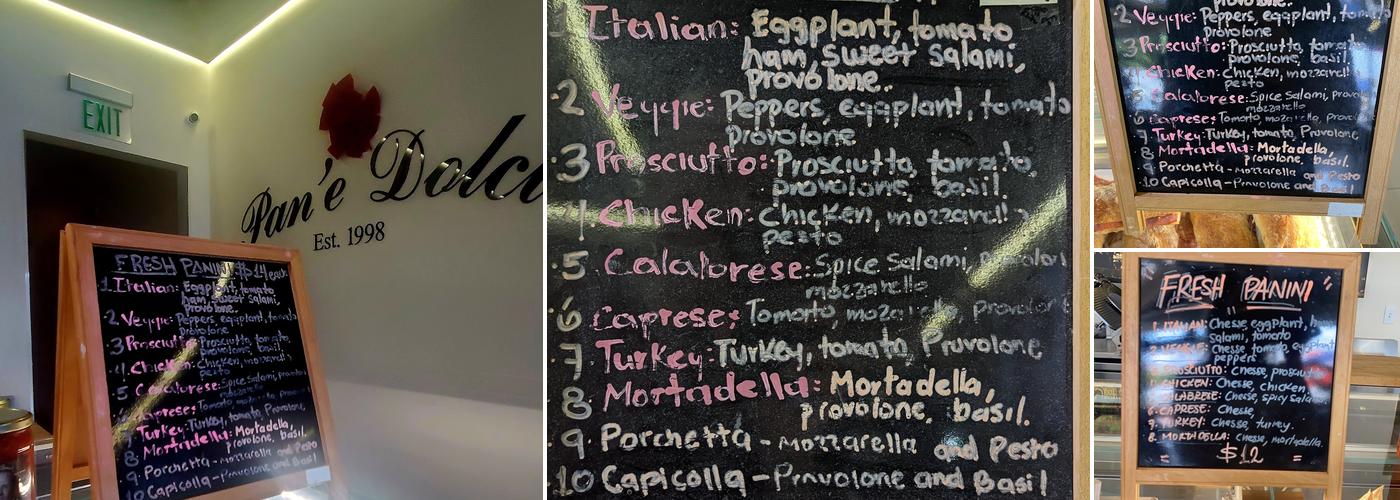 EXIT
Pan'e Dolci
Est. 1998
FRESH PANINI $14 each
1 Italian: Eggplant, tomato
ham, sweet salami,
provolone.
2 Veggie: Peppers, eggplant, tomato
provolone
3 Prosciutto: Prosciutto, tomato,
provolone, basil
4 Chicken: Chicken, mozzarell
pesto
5 Calabrese: Spice Salami, provolon
mozzarello
6 Caprese: Tomorto, mozarella, provolon
7 Turkey: Turkey, tomato, Provolone,
8 Mortadella: Mortadella,
provolone, basil.
9 Porchetta - Mozzarella and Pesto
10 Capicolla - Provolone and Basil
1 Italian: Eggplant, tomato
ham, sweet salami,
provolone.
.2 Veggie: Peppers, eggplant, tomato
provolone
.3 Prosciutto: Prosciutto, tomato,
provolone, basil
.4. Chicken: Chicken, mozzarell
pesto
.5 Calabrese: Spice Salami, provolon
mozzarello
6 Caprese: Tomorto, mozarella, provolon
7 Turkey: Turkey, tomato, Pruvolone
8 Mortadella: Mortadella,
provolone, basil.
.9. Porchetta - Mozzarella and Pesto
.10 Capicolla - Pruvolone and Basil
2 Veggie: Peppers, eggplant, tomato
provolone
3 Prosciutto: Prosciutto, tomato
provolone, basil
4 Chicken: Chicken, mozzarell
pesto
5 Calabrese: Spice Salami, provo
mozzarello
6 Caprese: Tomorto, mozarella, provolo
7 Turkey: Turkey, tomato, Provolone
8 Mortadella: Mortadella,
provolone, basil.
9 Porchetta - Mozzarella and Pesto
10 Capicolla - Provolone and Basil
"FRESH PANINI"
1. ITALIAN: Chesse, eggplant, h
Salami, tomato
2. VEGGIE: Chesse tomato, eggplant
peppers
3. PROSCIUTTO: Chesse, prosciutt
4. CHICKEN: Chesse, chicken
CALABRESE: Chesse, spicy sala
6. CAPRESE: Chesse,
9. TURKEY: Chesse, turkey.
8. MORTADELLA: Chesse, mortadella.
= $12 =